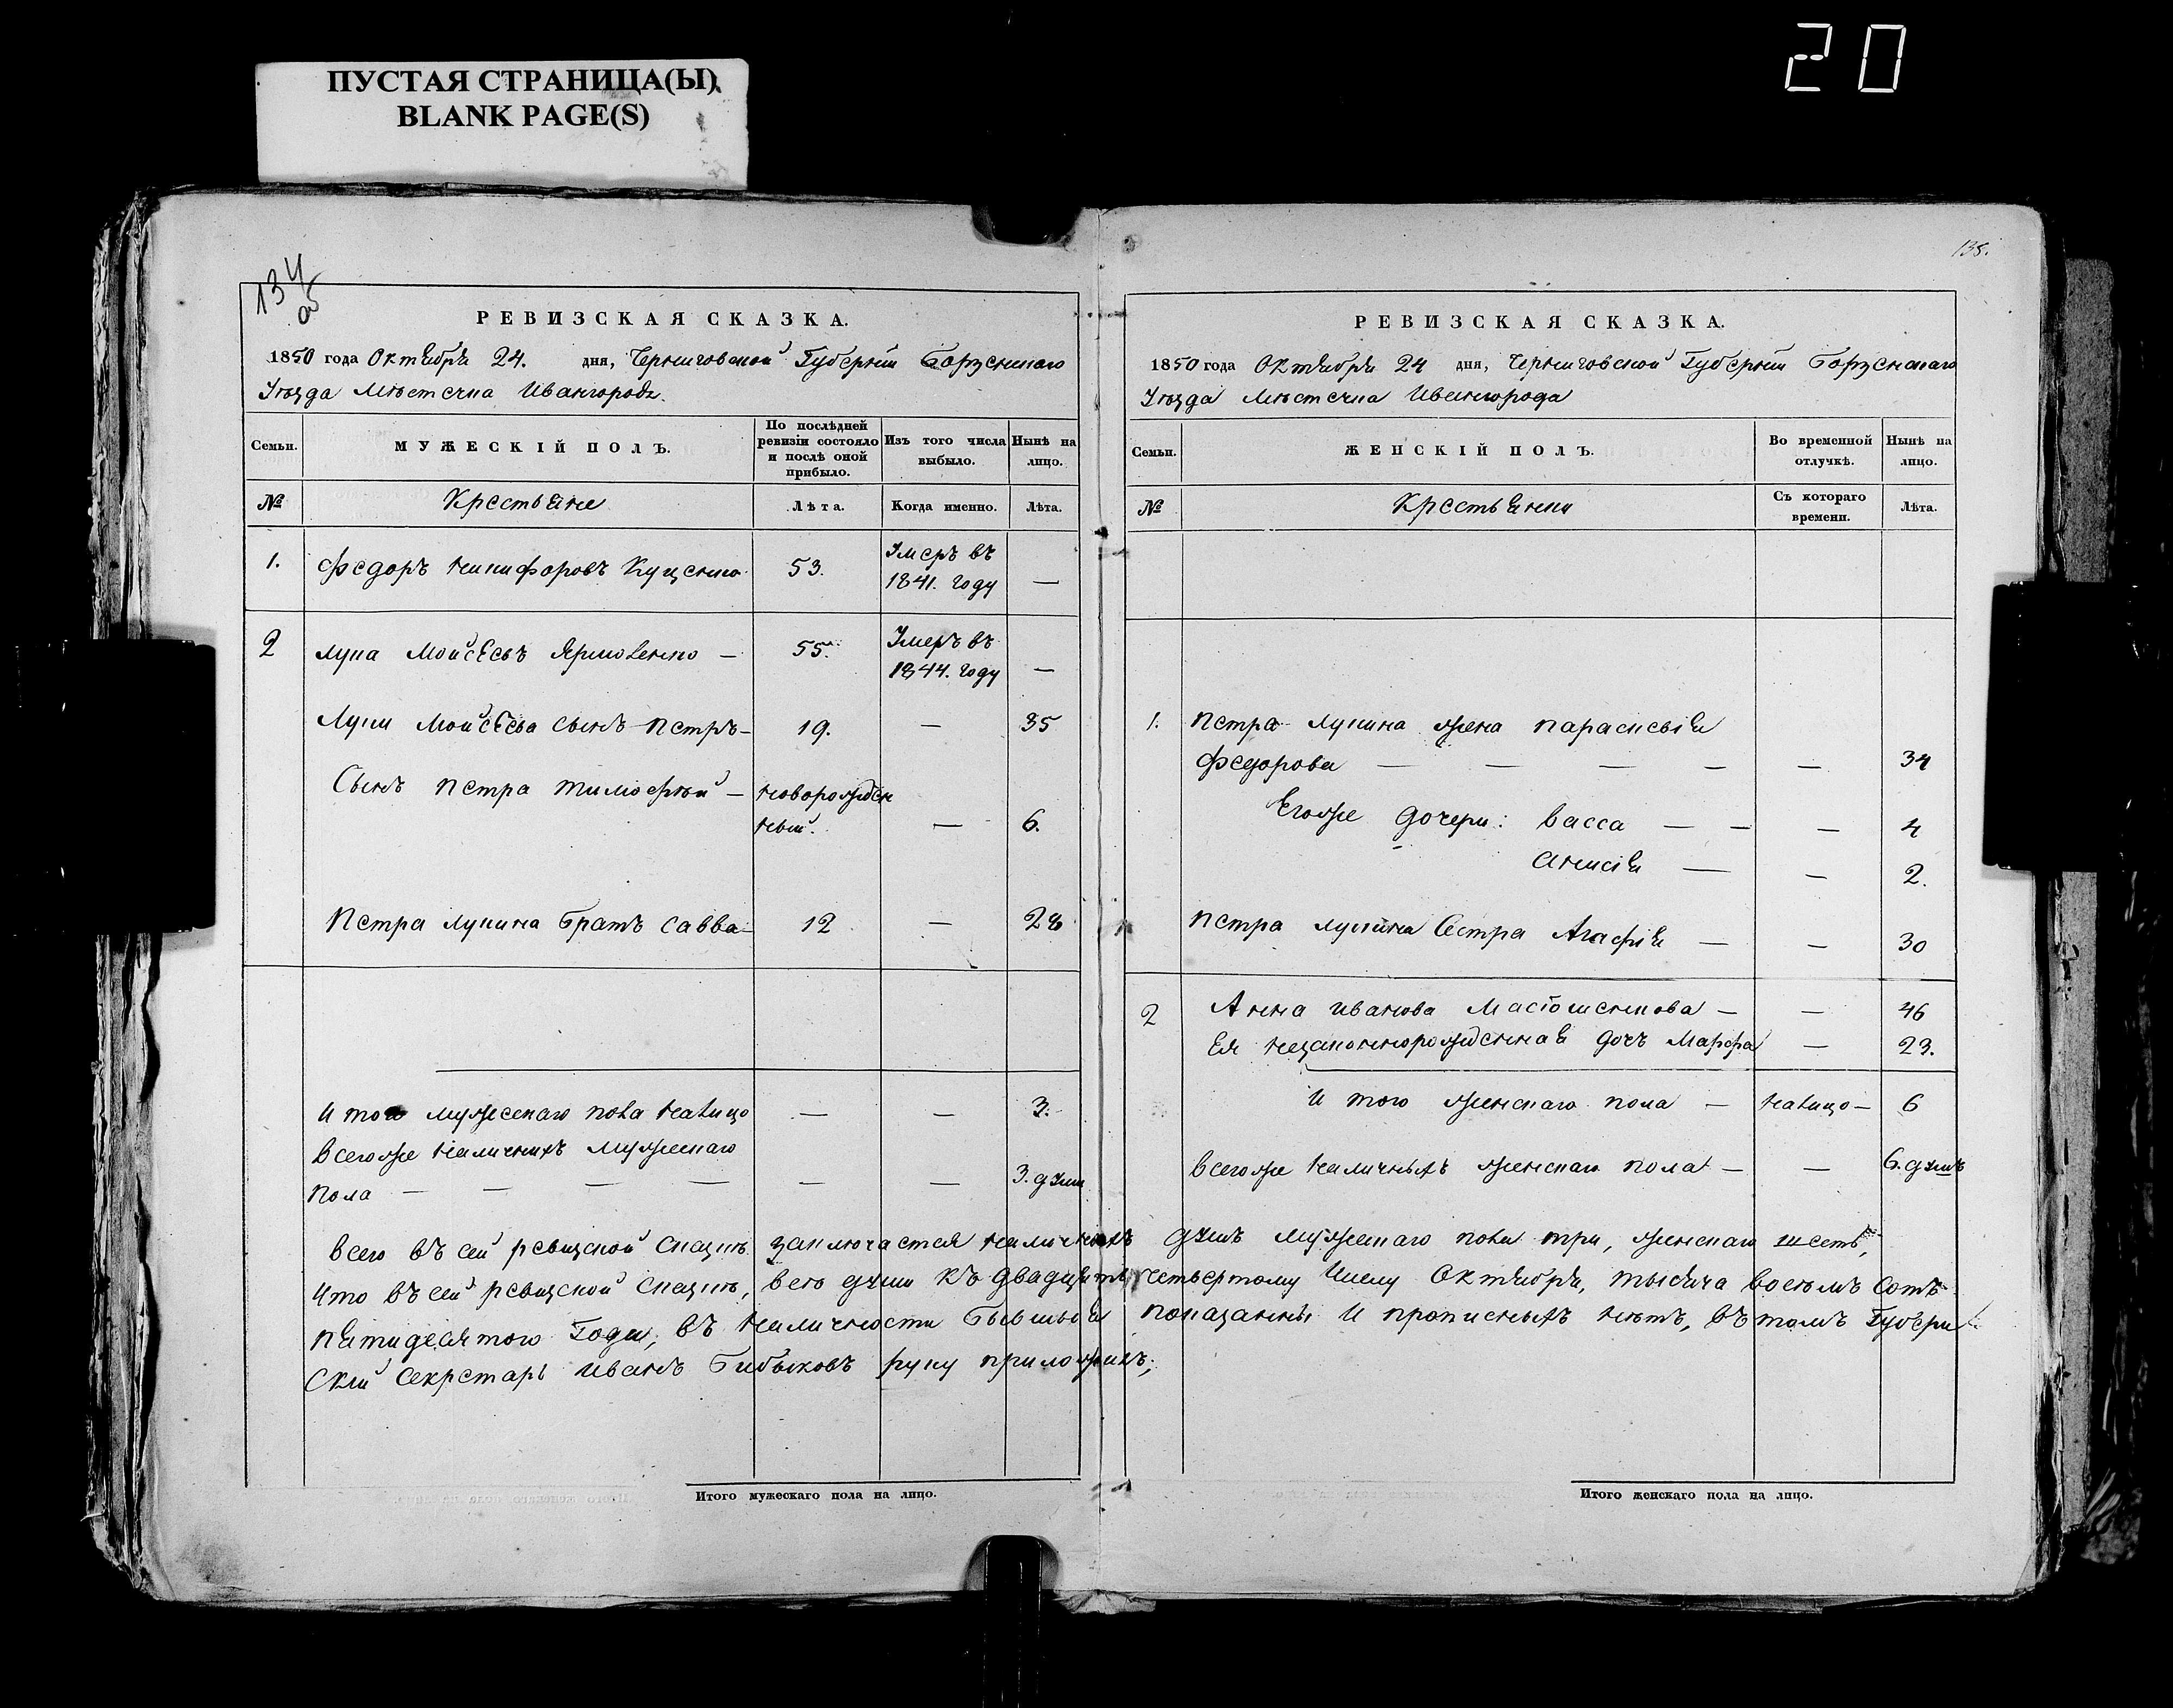 20
ПУСТАЯ СТРАНИЦА(Ы)
BLANK PAGE(S)
134
об
РЕВИЗСКАЯ СКАЗКА.
1850 года Октября 24. дня, Черниговской Губерніи Борзенскаго
Уѣзда Мѣстечка Ивангорода.
Семьи. МУЖЕСКІЙ ПОЛЪ. По послѣдней ревизіи состояло и послѣ оной прибыло. Изъ того числа выбыло. Нынѣ на лицо.
№ Крестьяне Лѣта. Когда именно. Лѣта.
1. Федоръ Никифоровъ Куценко 53. Умеръ въ 1841. году —
2 Лупа Мойсеевъ Ярмоленко — 55. Умеръ въ 1844. году —
Лупы Мойсеева сынъ Петръ — 19. — 35
Сынъ Петра Тимофѣй — новорожден
ный. — 6.
Петра Лупина братъ Савва — 12 — 28
Итого мужескаго пола налицо — — 3.
Всегоже наличныхъ мужескаго
пола — — — — — — 3. души
138.
РЕВИЗСКАЯ СКАЗКА.
1850 года Октября 24 дня, Черниговской Губерніи Борзенскаго
Уѣзда Мѣстечка Ивангорода
Семьи. ЖЕНСКІЙ ПОЛЪ. Во временной отлучкѣ. Нынѣ на лицо.
№ Крестьянки Съ котораго времени. Лѣта.
1. Петра Лупина жена Параскевія
Федорова — — — — — 34
Егоже дочери: Васса — — — 4
Анисія — — 2.
Петра Лупина Сестра Агафія — — 30
2 Анна Иванова — — 46
Ея незаконнорожденная дочь Марфа — 23.
Итого женскаго пола — налицо — 6
Всегоже наличныхъ женскаго пола — — 6. душъ
Всего въ сей ревизской сказкѣ заключается наличныхъ душъ мужескаго пола три, женскаго шесть,
Что въ сей ревизской сказкѣ, всѣ души къ двадцать четвертому числу Октября, тысяча восемь сотъ
пятидесятого года, въ наличности бывшыя показанны и прописныхъ нѣтъ, въ томъ Губерн
скій Секретарь Иванъ Бибиковъ руку приложилъ;
Итого мужескаго пола на лицо.
Итого женскаго пола на лицо.